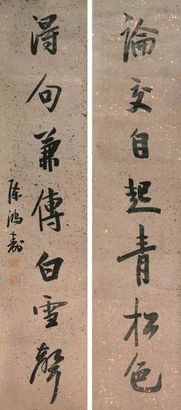 論交自起青松色
得句兼傳白雪聲
陳鴻壽